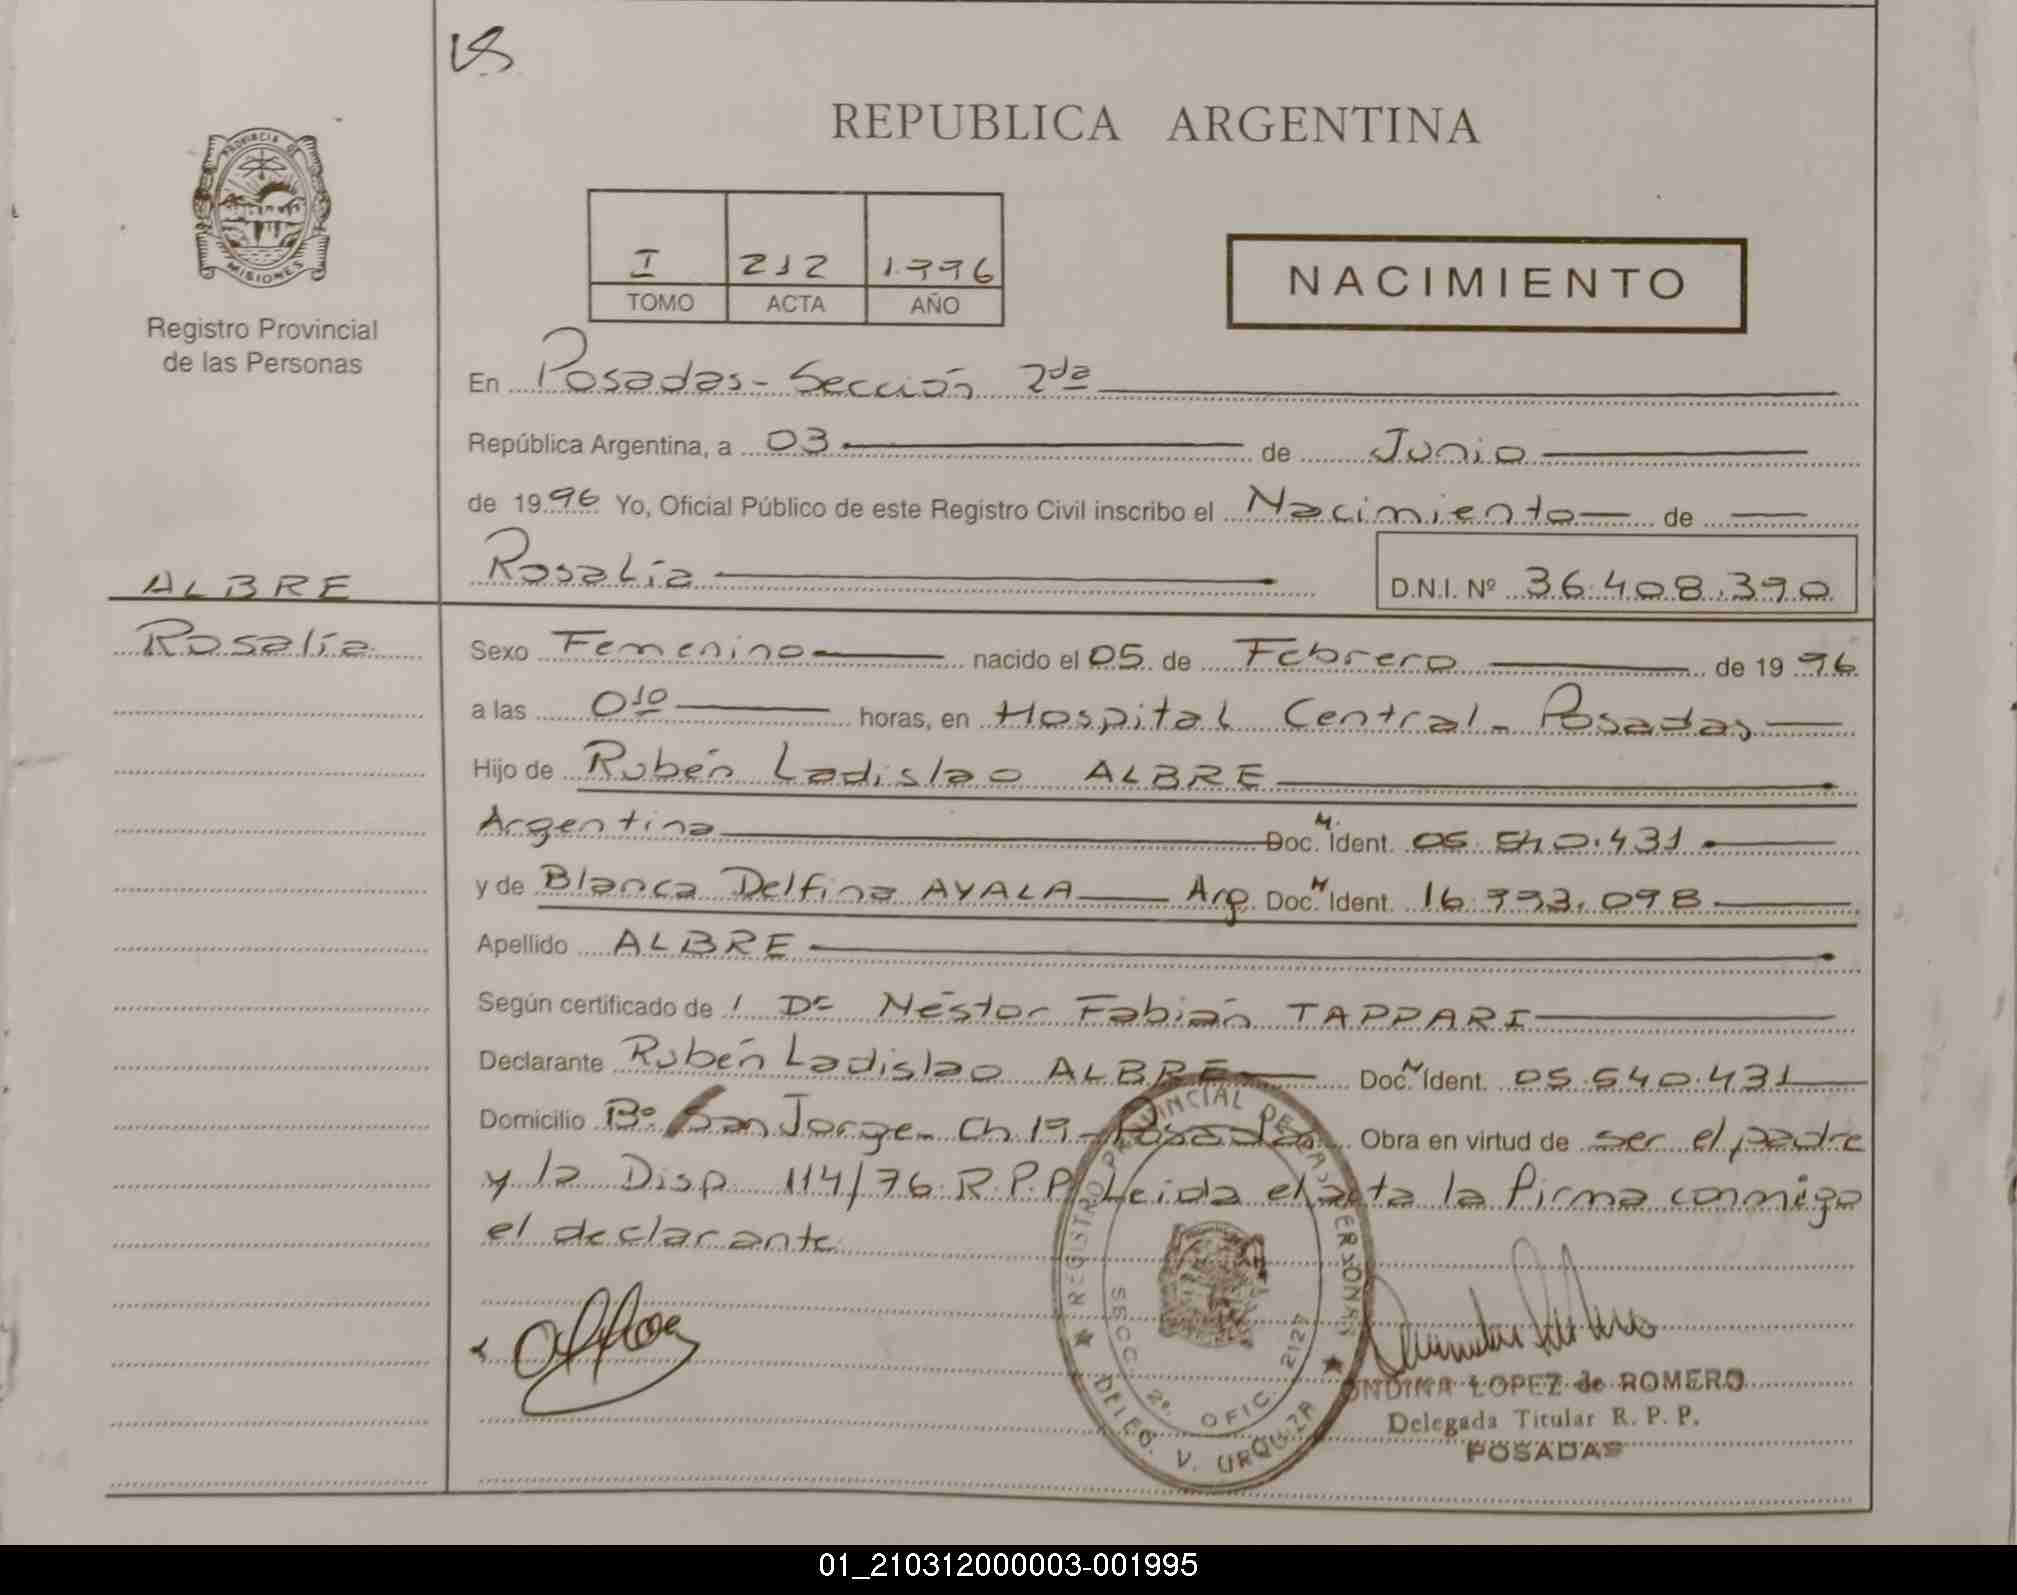 REPUBLICA ARGENTINA
PROVINCIA DE MISIONES
Registro Provincial
de las Personas
I 212 1996
TOMO ACTA AÑO
NACIMIENTO
En Posadas - Sección 2da
República Argentina, a 03 de Junio
de 1996 Yo, Oficial Público de este Registro Civil inscribo el Nacimiento de
Rosalía D.N.I. Nº 36.408.390
ALBRE
Rosalía
Sexo Femenino nacido el 05 de Febrero de 1996
a las 0 10 horas, en Hospital Central - Posadas
Hijo de Rubén Ladislao ALBRE
Argentina Doc. M. Ident. 05.540.431
y de Blanca Delfina AYALA Arg. Doc. N Ident. 16.993.098
Apellido ALBRE
Según certificado de Dr Néstor Fabián TAPPARI
Declarante Rubén Ladislao ALBRE Doc. N Ident. 05.540.431
Domicilio Bº San Jorge - Ch 19 - Posadas Obra en virtud de ser el padre
y la Disp. 114/76 R.P.P. Leida el acta la firma conmigo
el declarante
REGISTRO PROVINCIAL DE LAS PERSONAS
SECC. 2ª. OFIC. 2127
DELEG. V. URQUIZA
ONDINA LOPEZ de ROMERO
Delegada Titular R. P. P.
POSADAS
01_210312000003-001995